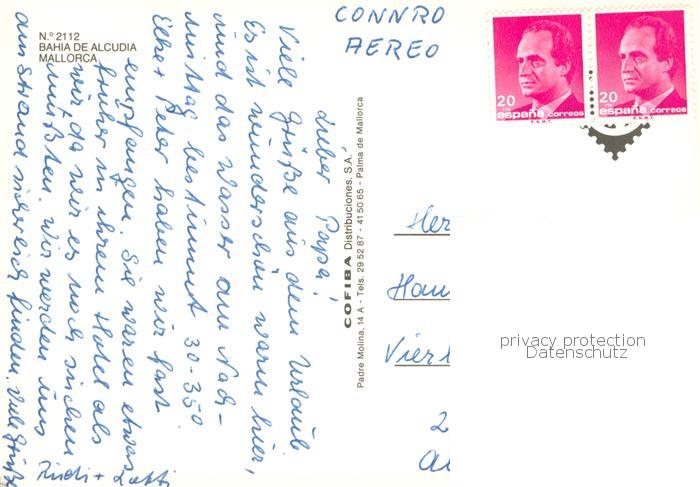 N.º 2112
BAHIA DE ALCUDIA
MALLORCA
CONNRO
AEREO
20
PTA
españa correos
F.N.M.T.
20
PTA
españa correos
F.N.M.T.
Lieber Papa!
Viele Grüße aus dem Urlaub
Es ist wunderschön warm hier,
und das Wasser am Nach-
mittag bestimmt 30-35°
Elke + Peter haben wir fast
empfangen. Sie waren etwas
früher in ihrem Hotel als
wir, da wir es noch suchen
mußten. Wir werden uns
am Strand sicherlich finden. Viele Grüße
COFIBA Distribuciones, S.A.
Padre Molina, 14 A - Tels. 29 52 87 - 41 50 65 - Palma de Mallorca
Her
Han
Vier
2
privacy protection
Datenschutz